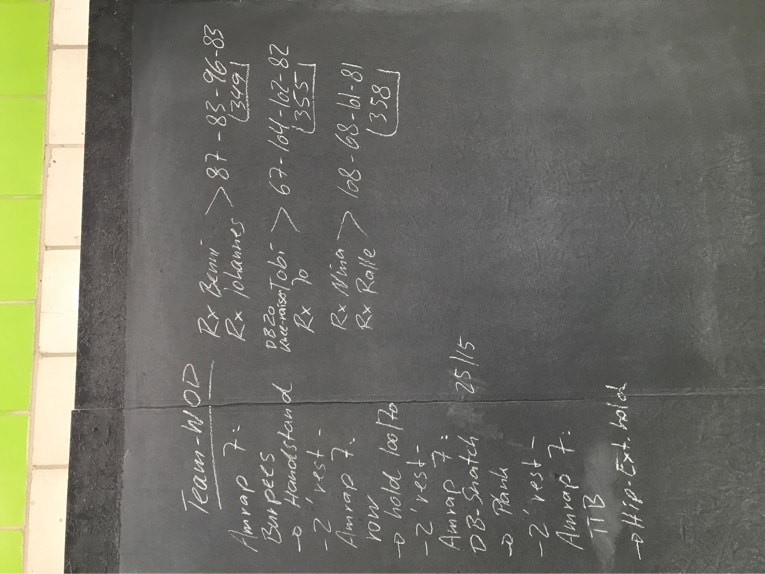 Team-WOD
Amrap 7:
Burpees
→ Handstand
- 2' rest -
Amrap 7:
row
→ hold 100/70
- 2' rest -
Amrap 7:
DB-Snatch 25/15
→ Plank
- 2' rest -
Amrap 7:
TTB
→ Hip-Ext. hold
Rx Benni
Rx Johannes > 87-83-96-83
349
DB20
knee-raises Tobi
Rx Jo > 67-104-102-82
355
Rx Nina
Rx Ralle > 108-68-101-81
358